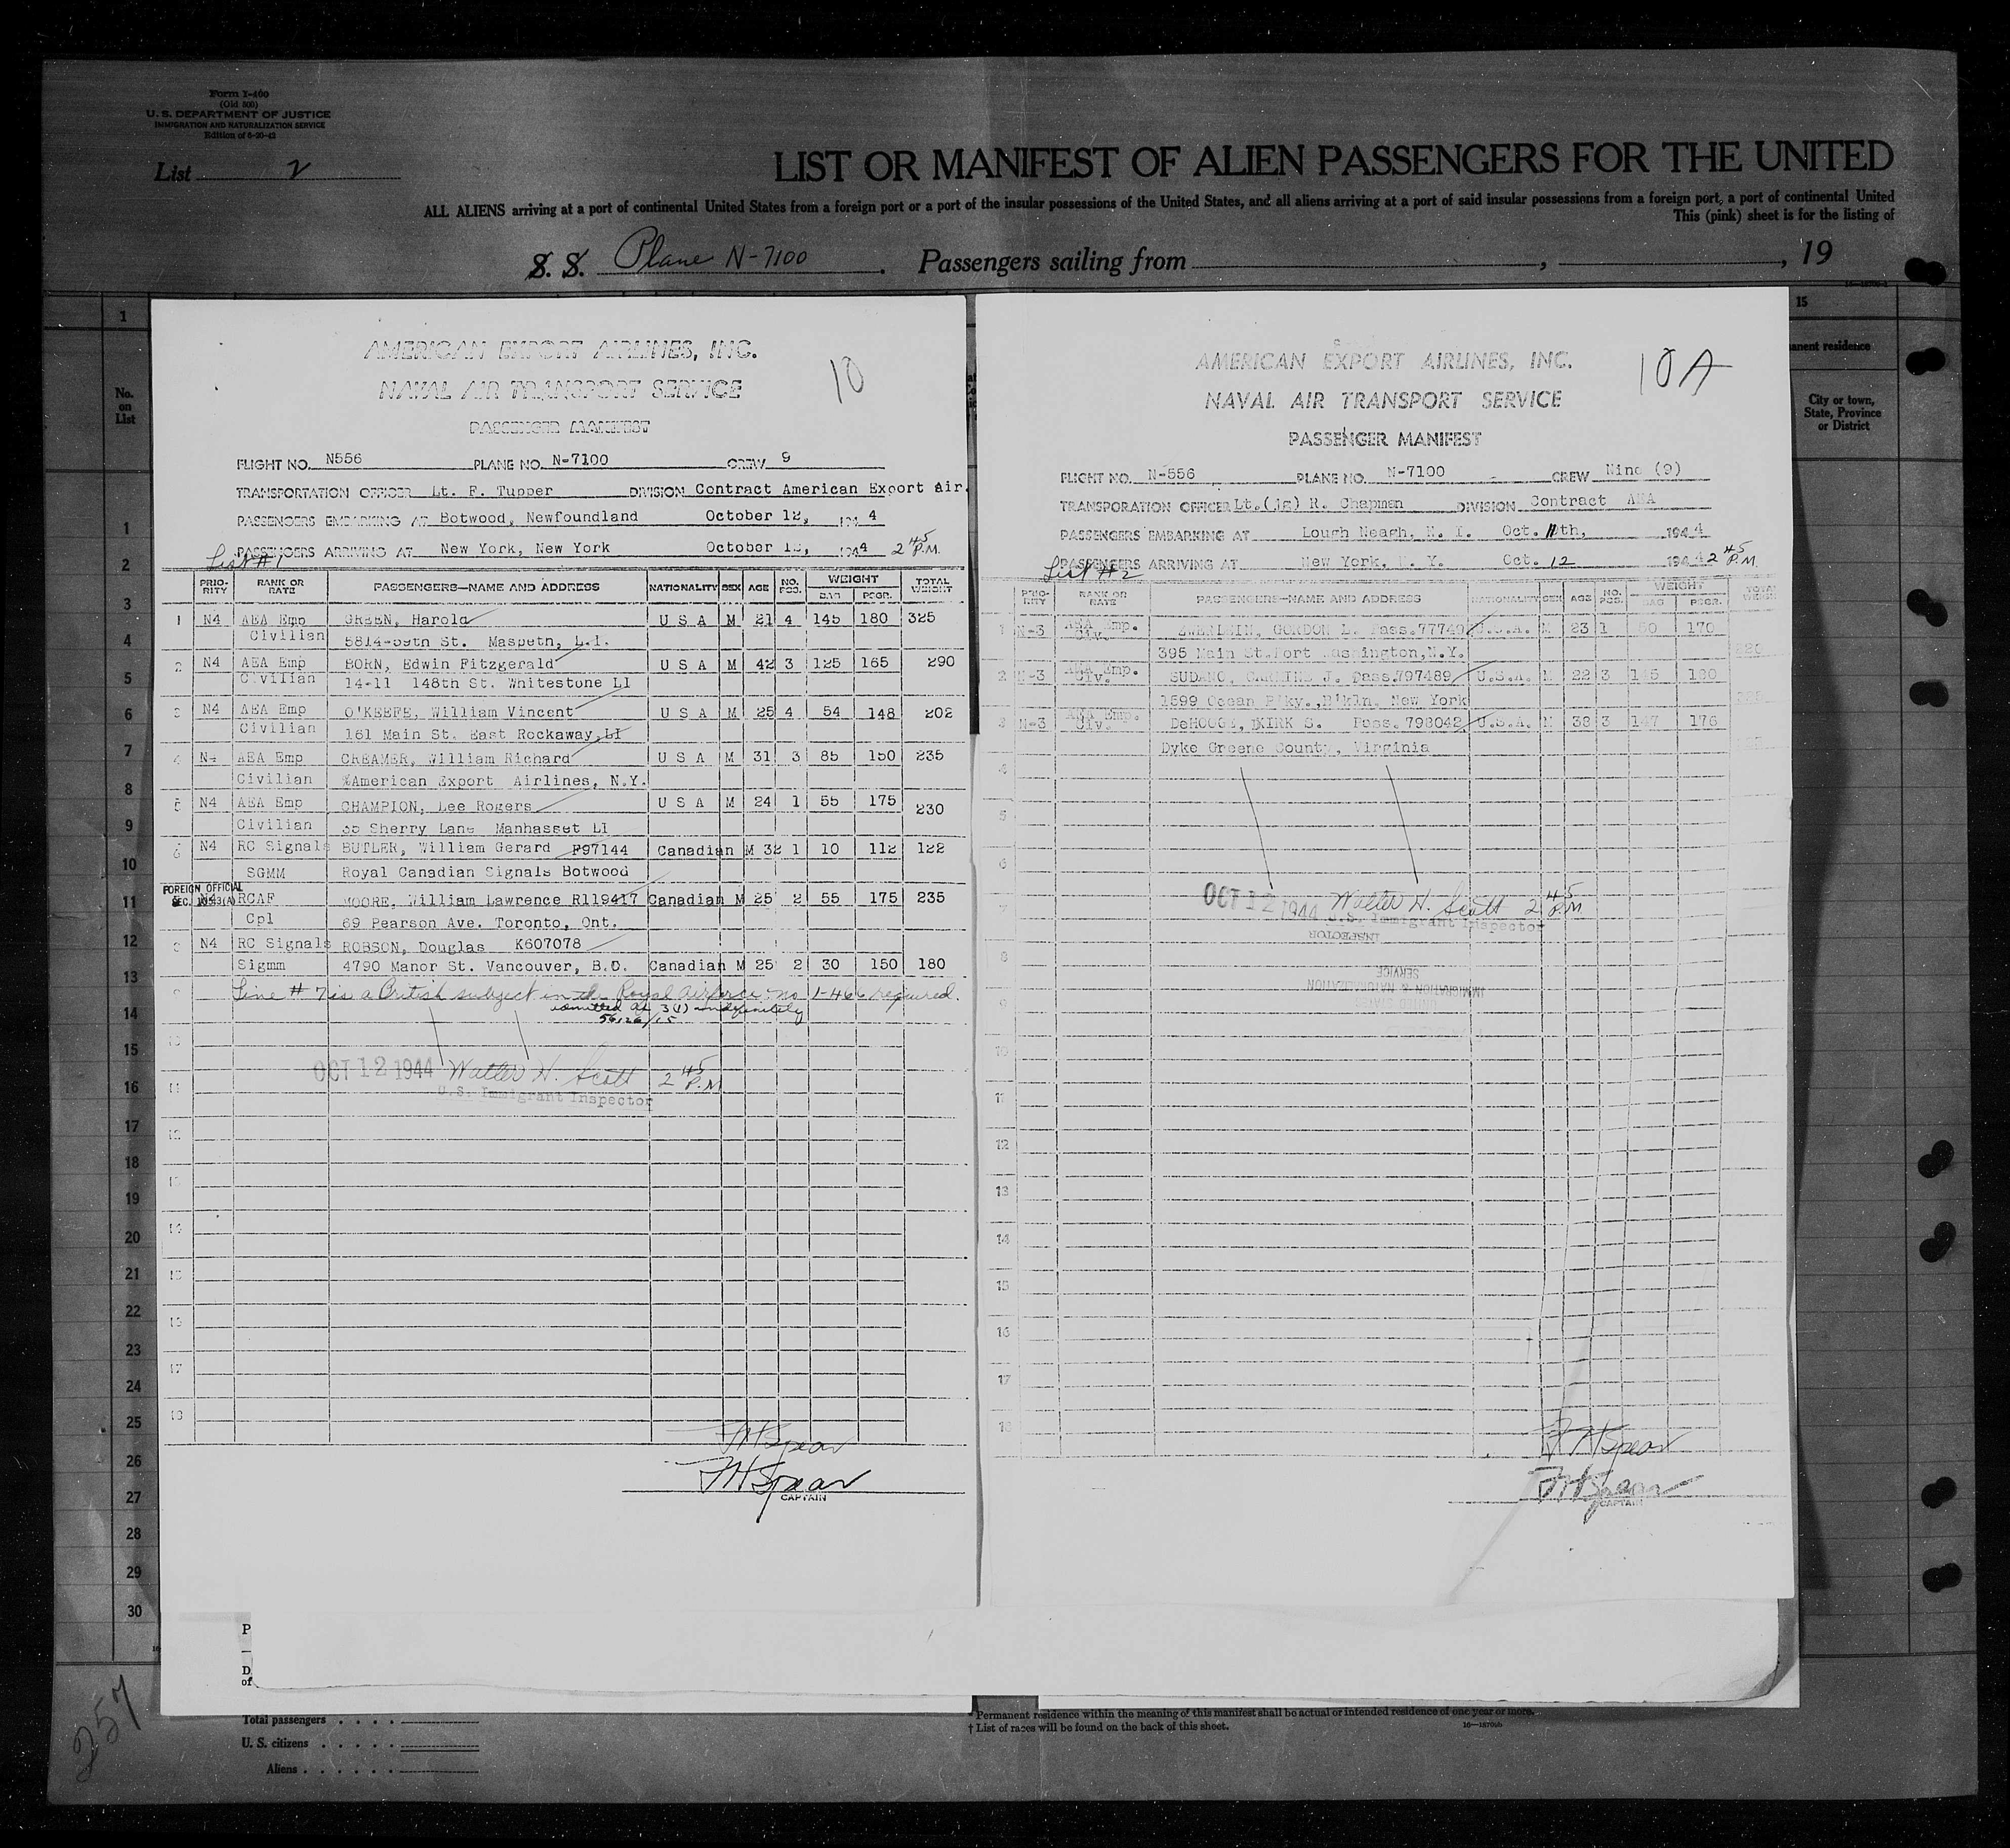 Form I-460
(Old 500)
U. S. DEPARTMENT OF JUSTICE
IMMIGRATION AND NATURALIZATION SERVICE
Edition of 6-20-42
List 2
LIST OR MANIFEST OF ALIEN PASSENGERS FOR THE UNITED
ALL ALIENS arriving at a port of continental United States from a foreign port or a port of the insular possessions of the United States, and all aliens arriving at a port of said insular possessions from a foreign port, a port of continental United
This (pink) sheet is for the listing of
S. S. Plane N-7100. Passengers sailing from , , 19
1
15
No. on List
anent residence
City or town, State, Province or District
1
2
3
4
5
6
7
8
9
10
11
12
13
14
15
16
17
18
19
20
21
22
23
24
25
26
27
28
29
30
AMERICAN EXPORT AIRLINES, INC.
10
NAVAL AIR TRANSPORT SERVICE
PASSENGER MANIFEST
FLIGHT NO. N556 PLANE NO. N-7100 CREW 9
TRANSPORTATION OFFICER Lt. F. Tupper DIVISION Contract American Export Air.
PASSENGERS EMBARKING AT Botwood, Newfoundland October 12, 1944
PASSENGERS ARRIVING AT New York, New York October 12, 1944 2 45 P.M.
List #1
PRIORITY RANK OR RATE PASSENGERS—NAME AND ADDRESS NATIONALITY SEX AGE NO. PCS. WEIGHT BAG PSGR. TOTAL WEIGHT
1 N4 AEA Emp GREEN, Harold U S A M 21 4 145 180 325
Civilian 5814-59th St. Maspeth, L.I.
2 N4 AEA Emp BORN, Edwin Fitzgerald U S A M 42 3 125 165 290
Civilian 14-11 148th St. Whitestone LI
3 N4 AEA Emp O'KEEFE, William Vincent U S A M 25 4 54 148 202
Civilian 161 Main St. East Rockaway, LI
4 N4 AEA Emp CREAMER, William Richard U S A M 31 3 85 150 235
Civilian %American Export Airlines, N.Y.
5 N4 AEA Emp CHAMPION, Lee Rogers U S A M 24 1 55 175 230
Civilian 35 Sherry Lane Manhasset LI
6 N4 RC Signals BUTLER, William Gerard F97144 Canadian M 32 1 10 112 122
SGMM Royal Canadian Signals Botwood
FOREIGN OFFICIAL
N4 RCAF MOORE, William Lawrence R119417 Canadian M 25 2 55 175 235
Cpl 69 Pearson Ave. Toronto, Ont.
8 N4 RC Signals ROBSON, Douglas K607078
Sigmm 4790 Manor St. Vancouver, B.C. Canadian M 25 2 30 150 180
Line # 7 is a British subject in the Royal Airforce no I-466 required.
admitted as 3(1) indefinitely
56126/15
OCT 12 1944 Walter H. Scott 2 45 P.M
U.S. Immigrant Inspector
10
11
12
13
14
15
16
17
18
F H Spear
F H Spear
CAPTAIN
AMERICAN EXPORT AIRLINES, INC.
10A
NAVAL AIR TRANSPORT SERVICE
PASSENGER MANIFEST
FLIGHT NO. N-556 PLANE NO. N-7100 CREW Nine (9)
TRANSPORATION OFFICER Lt.(jg) R. Chapman DIVISION Contract AEA
PASSENGERS EMBARKING AT Lough Neagh, N. I. Oct. 11th, 1944
PASSENGERS ARRIVING AT New York, N. Y. Oct. 12 1944 2 45 P.M.
List #2
PRIORITY RANK OR RATE PASSENGERS—NAME AND ADDRESS NATIONALITY SEX AGE NO. PCS. WEIGHT BAG PSGR. TOTAL WEIGHT
1 N-3 AEA Emp. Civ. GORDON L. Pass. U.S.A. M 23 1 50 170
395 Main St. Port Washington, N.Y. 220
2 N-3 AEA Emp. Civ. SUDANO, CARMINE J. Pass. 797489 U.S.A. M 22 3 145 180
1599 Ocean Pky., Bkln. New York
3 N-3 AEA Emp. Civ. DeHOOGE, DKIRK S. Pass. 798042 U.S.A. M 38 3 147 176
Dyke Greene County, Virginia
4
5
6
7
8
9
10
11
12
13
14
15
16
17
18
OCT 12 1944 Walter H. Scott 2 45 P.M
U.S. Immigrant Inspector
INSPECTOR
SERVICE
IMMIGRATION & NATURALIZATION
UNITED STATES
F H Spear
F H Spear
CAPTAIN
P
D
of
257
Total passengers
U. S. citizens
Aliens
* Permanent residence within the meaning of this manifest shall be actual or intended residence of one year or more.
† List of races will be found on the back of this sheet.